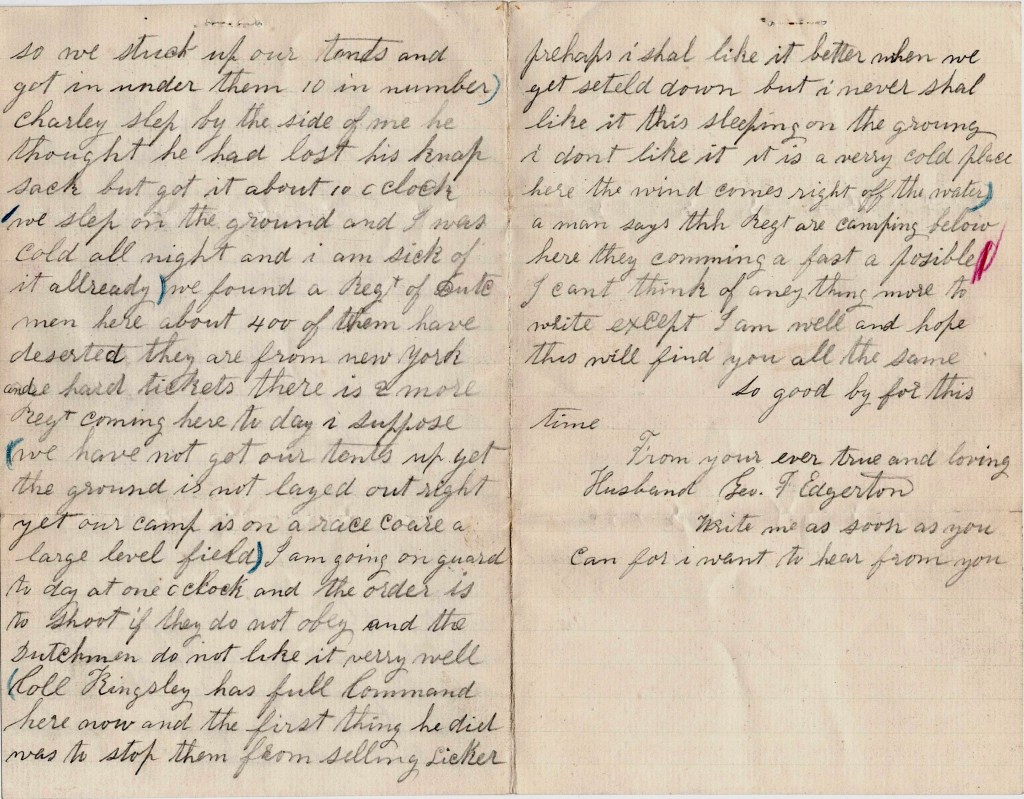 so we stuck up our tents and
got in under them 10 in number)
charley slep by the side of me he
thought he had lost his knap
sack but got it about 10 o clock
we slep on the ground and I was
cold all night and i am sick of
it allready) we found a Regt of Dutc
men here about 400 of them have
deserted they are from new York
and hard tickets there is 2 more
Regt coming here to day i suppose
(we have not got our tents up yet
the ground is not layed out right
yet our camp is on a race coare a
large level field) I am going on guard
to day at one o clock and the order is
to shoot if they do not obey and the
Dutchmen do not like it verry well
(Coll Kingsley has full Command
here now and the first thing he did
was to stop them from selling Licker
prehaps i shal like it better when we
get seteld down but i never shal
like it this sleeping on the groung
i dont like it it is a verry cold place
here the wind comes right off the water)
a man says thh Regt are camping below
here they comming a fast a posible
I cant think of aney thing more to
write except I am well and hope
this will find you all the same
so good by for this
time
From your ever true and loving
Husband Geo. F Edgerton
Write me as soon as you
Can for i want to hear from you